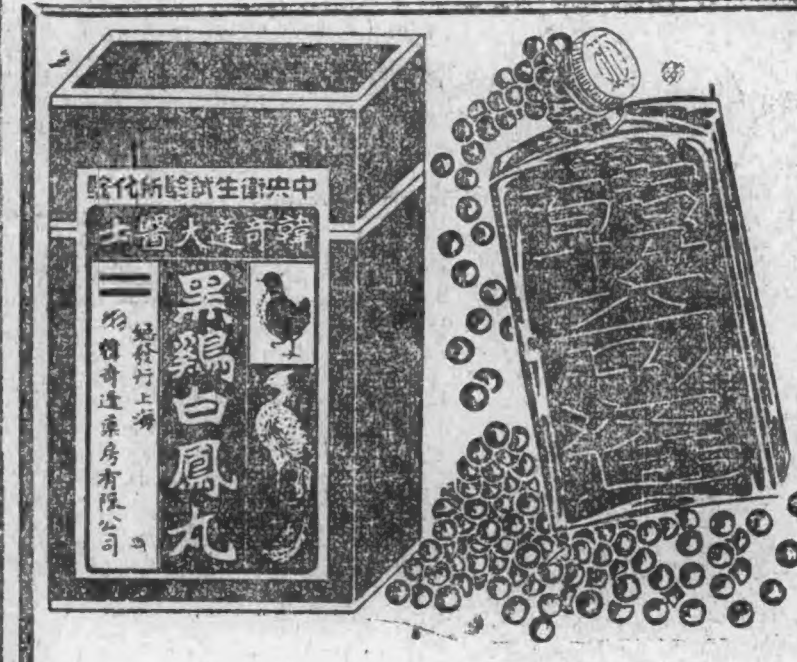 中央衛生試驗所化驗
韓奇逢大醫士
黑鷄白鳳丸
總發行上海
韓奇逢藥房有限公司
韓奇逢